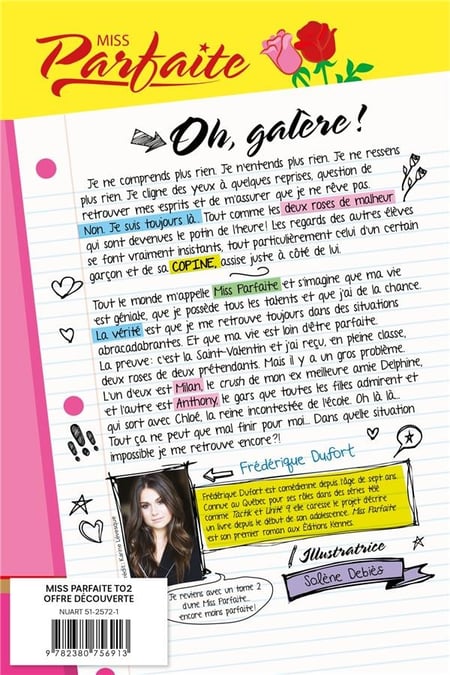 MISS
Parfaite
Oh, galère !
Je ne comprends plus rien. Je n'entends plus rien. Je ne ressens
plus rien. Je cligne des yeux à quelques reprises, question de
retrouver mes esprits et de m'assurer que je ne rêve pas.
Non. Je suis toujours là. Tout comme les deux roses de malheur
qui sont devenues le potin de l'heure! Les regards des autres élèves
se font vraiment insistants, tout particulièrement celui d'un certain
garçon et de sa COPINE, assise juste à côté de lui.
Tout le monde m'appelle Miss Parfaite et s'imagine que ma vie
est géniale, que je possède tous les talents et que j'ai de la chance.
La vérité est que je me retrouve toujours dans des situations
abracadabrantes. Et que ma vie est loin d'être parfaite.
La preuve: c'est la Saint-Valentin et j'ai reçu, en pleine classe,
deux roses de deux prétendants. Mais il y a un gros problème.
L'un d'eux est Milan, le crush de mon ex meilleure amie Delphine,
et l'autre est Anthony, le gars que toutes les filles admirent et
qui sort avec Chloé, la reine incontestée de l'école. Oh là là...
Tout ça ne peut que mal finir pour moi... Dans quelle situation
impossible je me retrouve encore?!
Frédérique Dufort
Frédérique Dufort est comédienne depuis l'âge de sept ans.
Connue au Québec pour ses rôles dans des séries télé
comme Tactik et Unité 9, elle caresse le projet d'écrire
un livre depuis le début de son adolescence. Miss Parfaite
est son premier roman aux Éditions Kennes.
Illustratrice
Solène Debiès
Je reviens avec un tome 2
d'une Miss Parfaite...
encore moins parfaite!
MISS PARFAITE TO2
OFFRE DÉCOUVERTE
NUART 51-2572-1
9 782380 756913